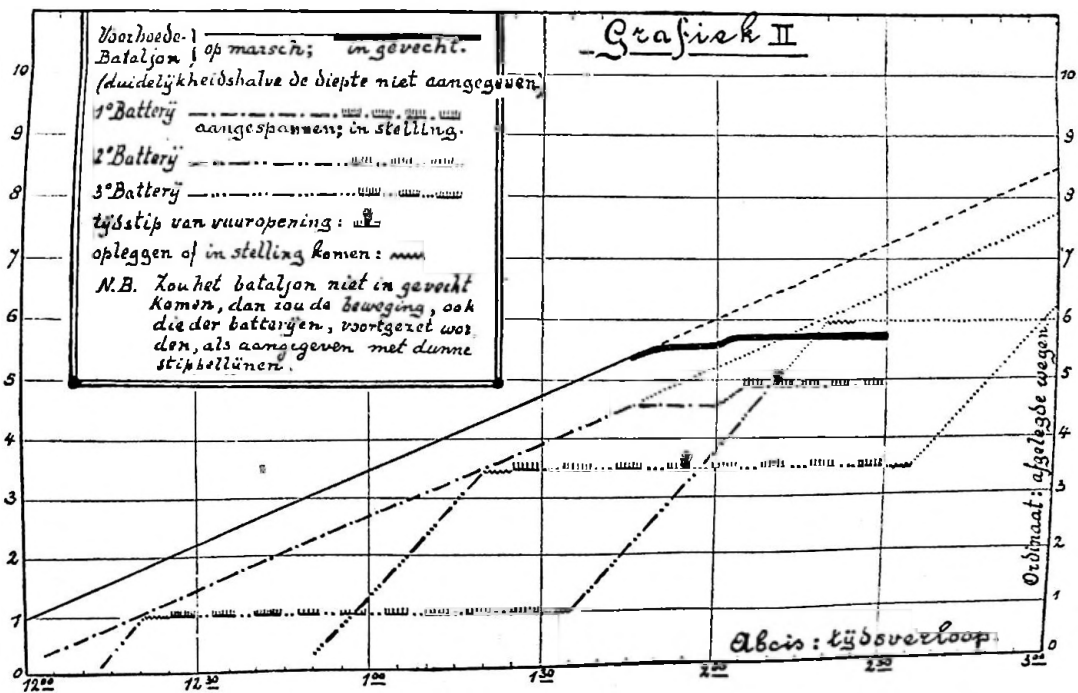 Grafiek II
Voorhoede-
Bataljon } op marsch; in gevecht.
(duidelijkheidshalve de diepte niet aangegeven)
1e Batterij
aangespannen; in stelling.
2e Batterij
3e Batterij
tijdstip van vuuropening:
opleggen of in stelling komen:
N.B. Zou het bataljon niet in gevecht
komen, dan zou de beweging, ook
die der batterijen, voortgezet wor
den, als aangegeven met dunne
stippellijnen.
10
9
8
7
6
5
4
3
2
1
0
10
9
8
7
6
5
4
3
2
1
0
Ordinaat: afgelegde wegen
Abcis: tijdsverloop
12 00
12 30
1 00
1 30
2 00
2 30
3 00